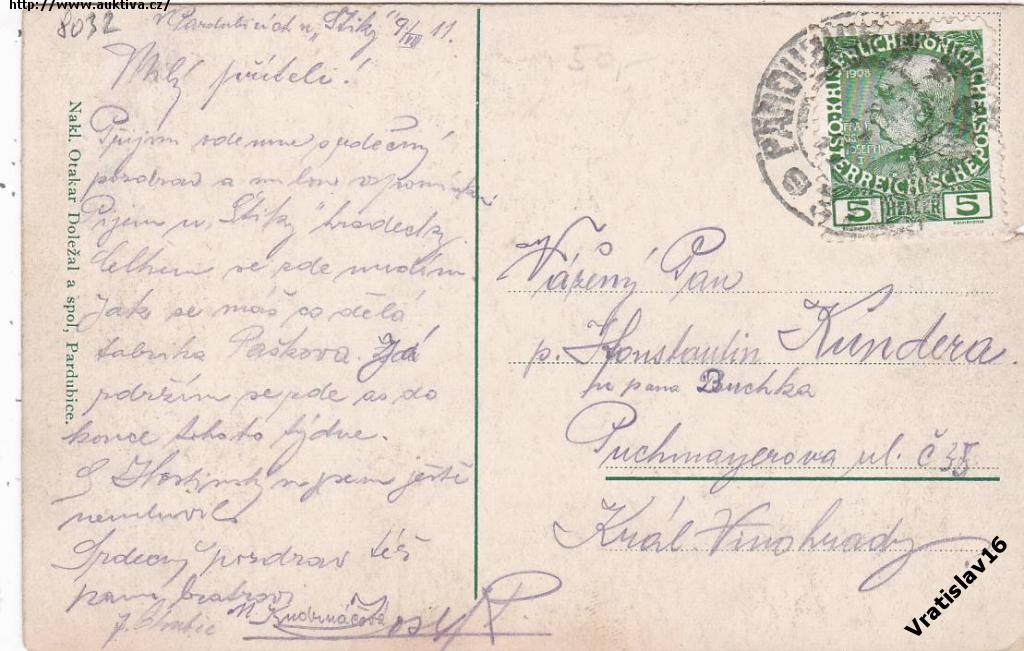 http://www.auktiva.cz/
8032
v Pardubicích u „Štiky" 9/VII 11.
Milý příteli!
Přijm ode mne srdečný
pozdrav a milou vzpomínku
Pijem u „Štiky" hradecký.
Celkem se zde nudím.
Jak se máš co dělá
fabrika Paškova. Já
podržím se zde as do
konce tohoto týdne.
S jsem ještě
nemluvil
Srdečný pozdrav též
panu bratrovi
Josef P.
Nakl. Otakar Doležal a spol, Pardubice.
PARDUBI
KAISERLICHE KÖNIGLICHE ÖSTERREICHISCHE
1908
5 HELLER 5
Vážený Pan
p. Konstantin Kundera.
pana Buchka
Puchmayerova ul. č 35
Král. Vinohrady
Vratislav16